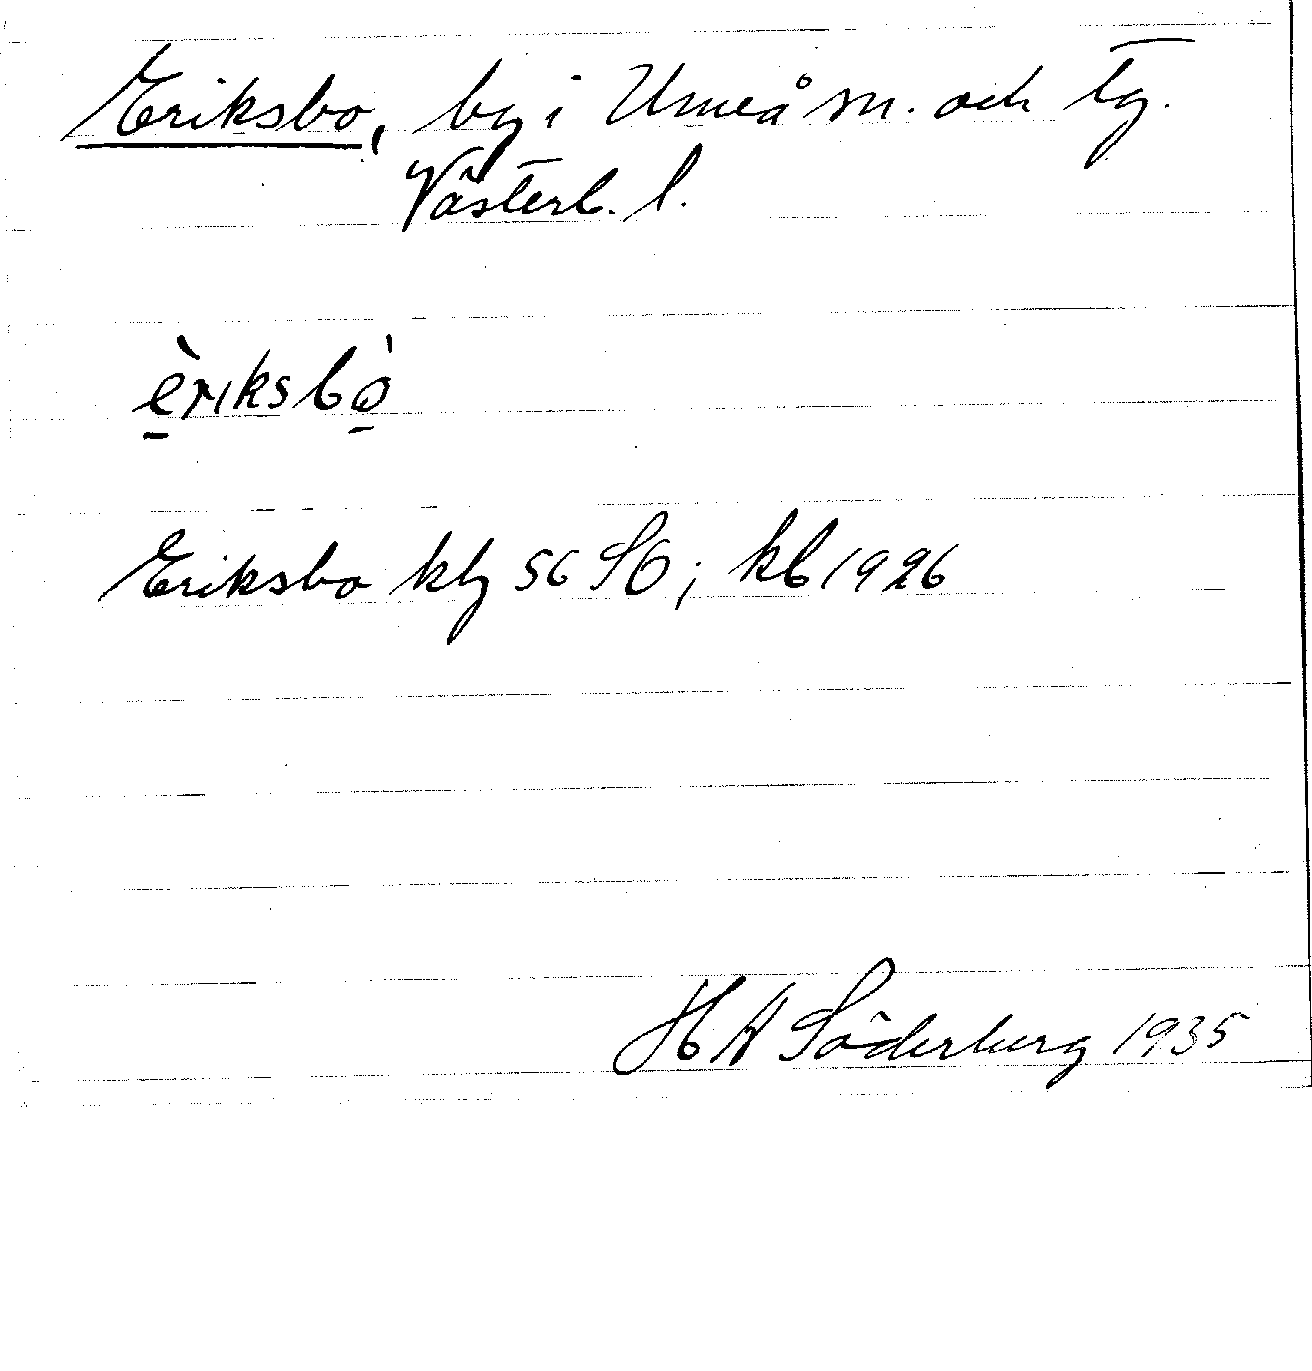 Eriksbo, by i Umeå sn. och tg.
Västerb. l.
èriksbò
Eriksbo kbg 56 SO; kb 1926
H A Söderberg 1935